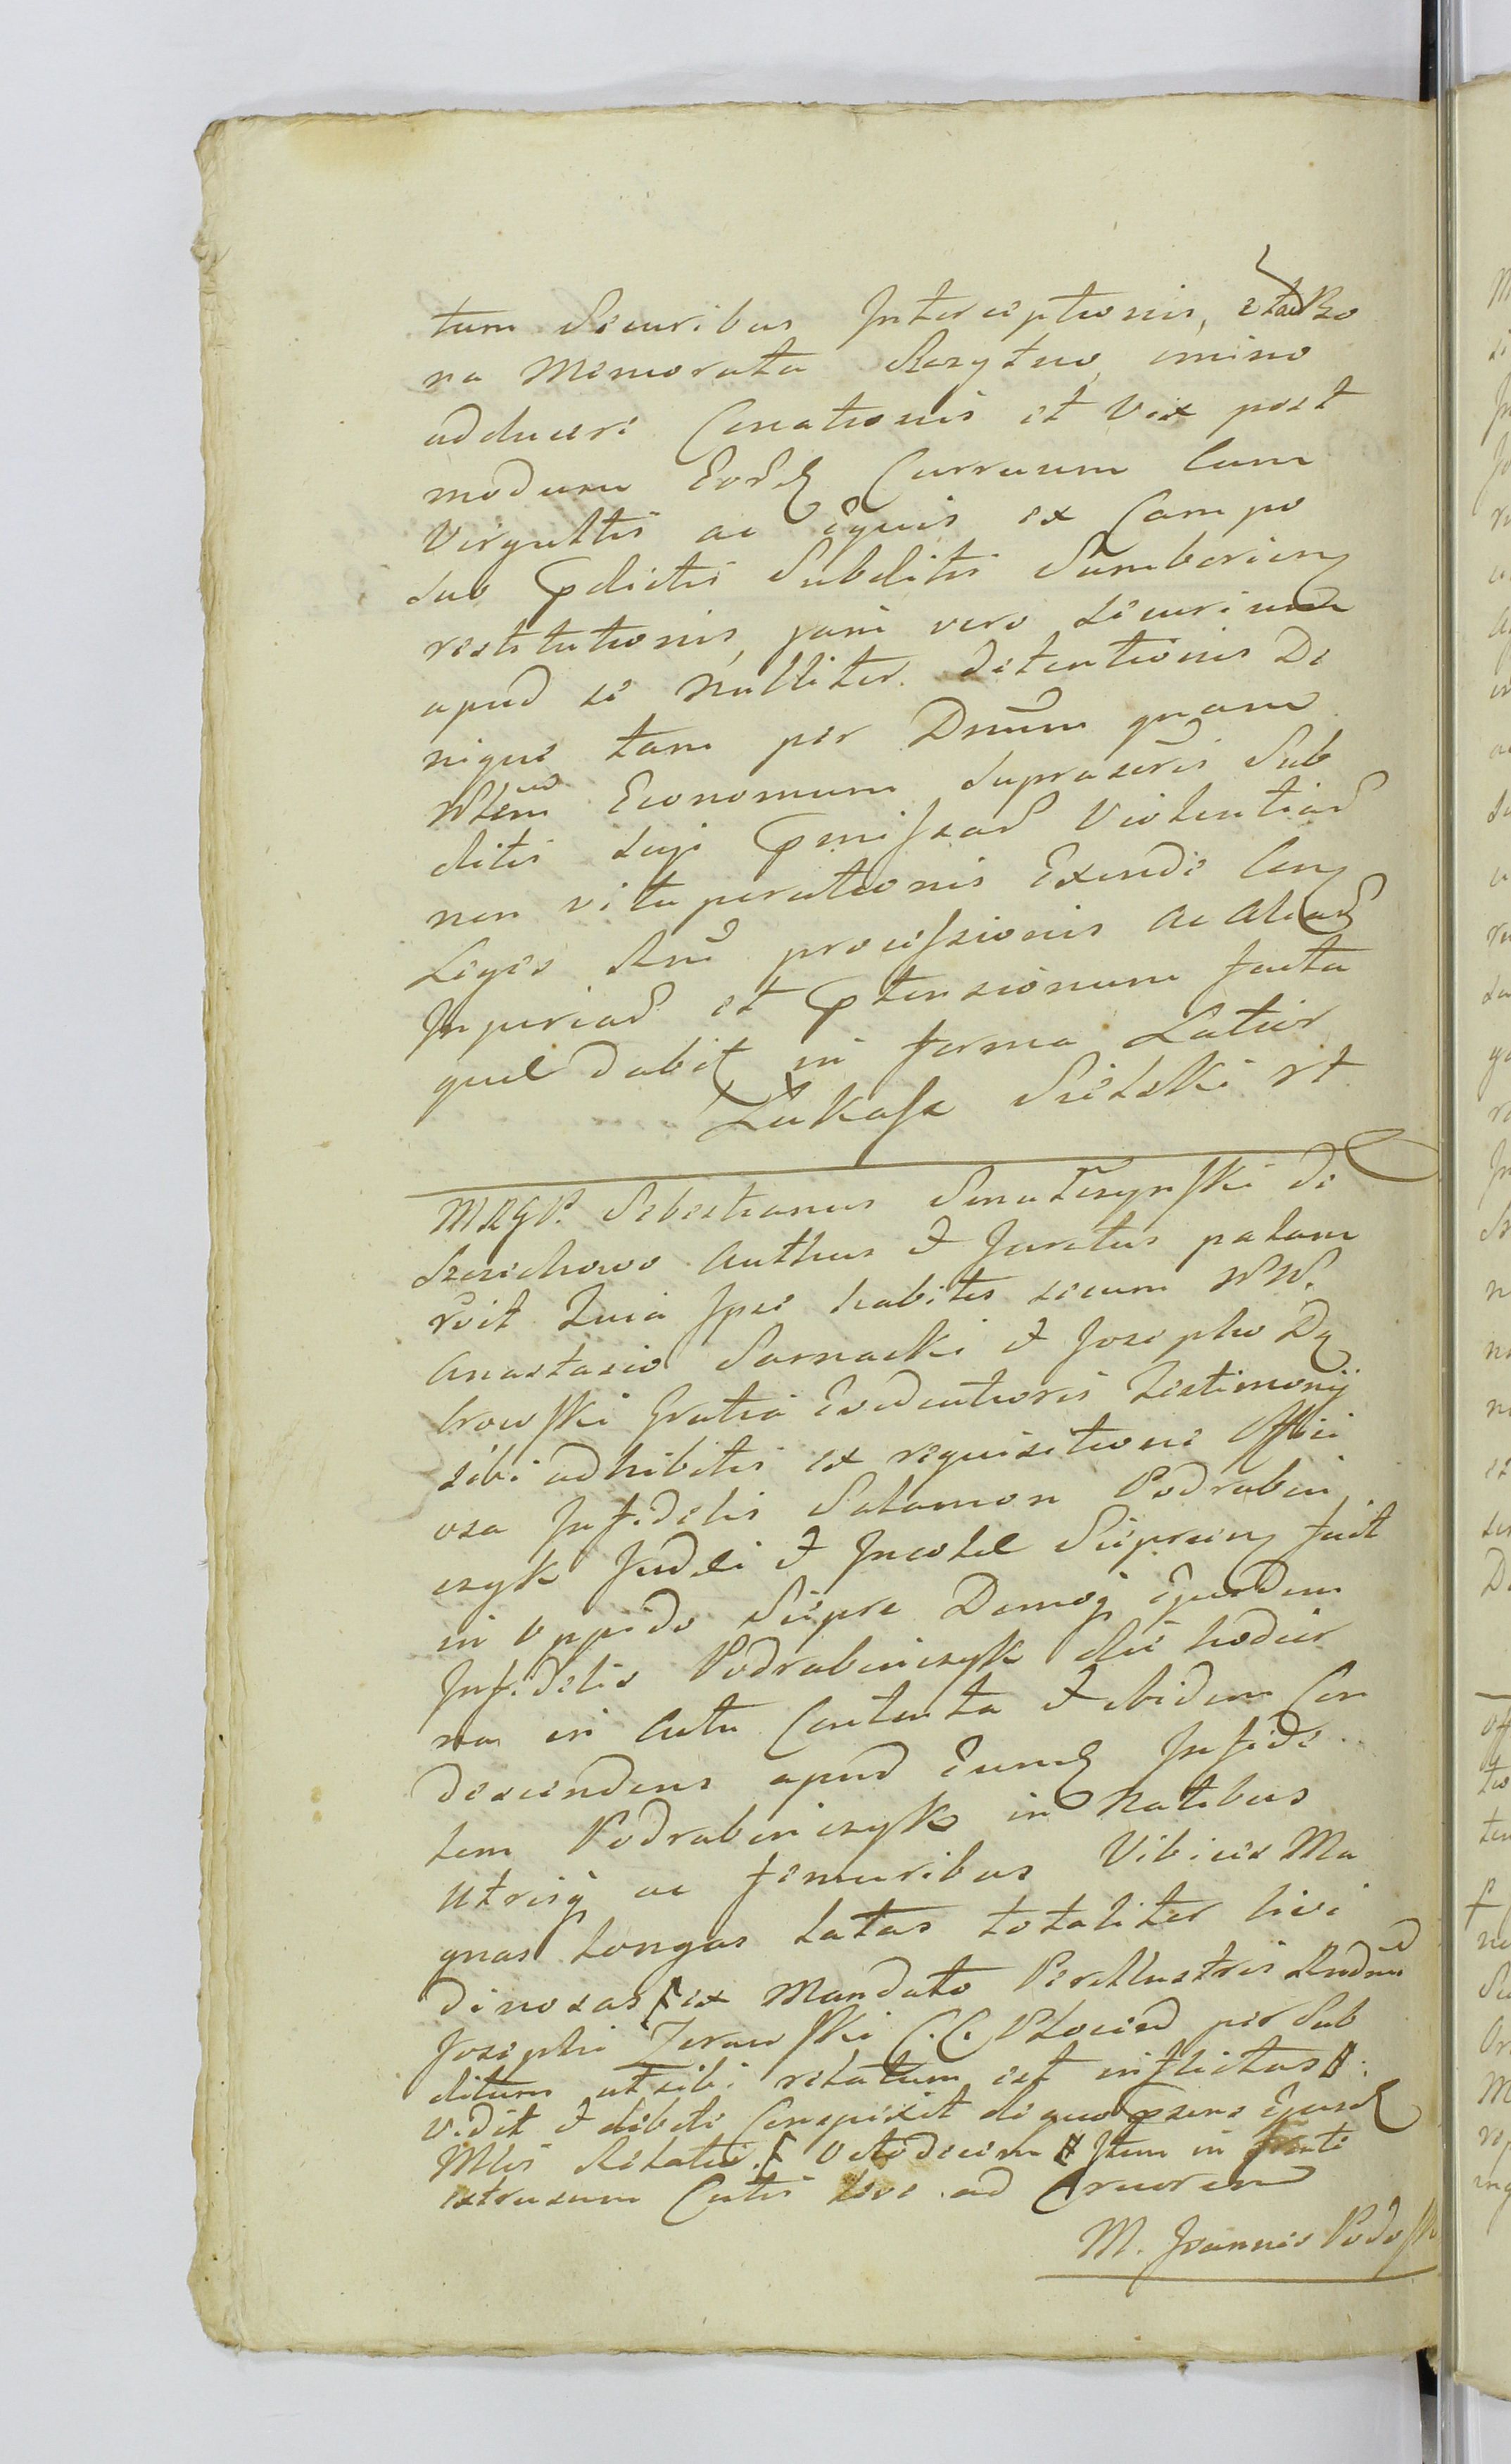 tum Securibus Interceptionis, et ad Bo
na Memorata Rszytno, imino
adduceri Conationis et Vix post
modum Eord Curruum Cum
Virgultis ac Equis ex Campo
sub Pdictis Subditis Samborien
restitutionis, jam vero Securium
apud se Nulliter detentionis De
nique tam per Dnum quam
Nlem Economum suprascris Sub
ditis suis Pmissar Violentiar
non vituperationis Exinde Con
Leges Rni processionis ac aliar
Injuriar et Ptensionum facta
quae dabit in forma Latior
Łukasz Sielski rt
MRGP. Sebestianus Smuleszynski de
Szczechowo Authus & Juratus palam
rvit Quia Ipse habitis secum NN.
Anastasio Sarnacki & Josepho Dą
browski Gratia Evidentioris Testimonij
sibi adhibitis ex requisitione Offici
osa Infidelis Salamon Podrabin
czyk Judei & Incolae Sieprcen fuit
in Oppido Sieprc Domoq Ejusdem
Infidelis Podrabinczyk die hodier
na in Actu Contenta & ibidem Con
descendens apud Eund Infide
lem Podrabinczyk in Natibus
Utrisq ac femuribus Vibices Ma
gnas longas latas totaliter livi
dinosas [ex Mandato Perillustris Rndmi
Josephi Zerawski C.C. Plocien per Sub
ditum ut sibi relatum est inflictas].
vidit & debite Conspexit de quo Psens Ejusd
Mlis Relatio. [Octodecim] Item in fronte
extrusum Cutis leve ad Cruorem
M. Joannes Podoski